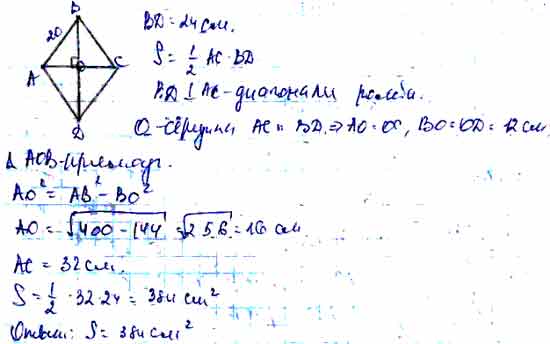 B
20
A
C
D
BD = 24 см.
S = 1/2 AC · BD
BD ⊥ AC - диагонали ромба.
O - середина AC и BD ⇒ AO = OC, BO = OD = 12 см
Δ AOB - прямоуг.
AO² = AB² - BO²
AO = √400 - 144 = √256 = 16 см.
AC = 32 см.
S = 1/2 · 32 · 24 = 384 см²
Ответ: S = 384 см²